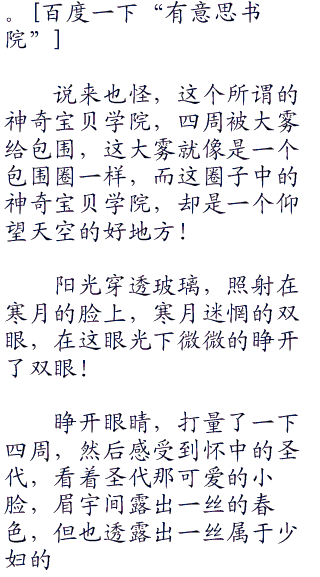 。[百度一下“有意思书
院”]
说来也怪，这个所谓的
神奇宝贝学院，四周被大雾
给包围，这大雾就像是一个
包围圈一样，而这圈子中的
神奇宝贝学院，却是一个仰
望天空的好地方！
阳光穿透玻璃，照射在
寒月的脸上，寒月迷惘的双
眼，在这眼光下微微的睁开
了双眼！
睁开眼睛，打量了一下
四周，然后感受到怀中的圣
代，看着圣代那可爱的小
脸，眉宇间露出一丝的春
色，但也透露出一丝属于少
妇的